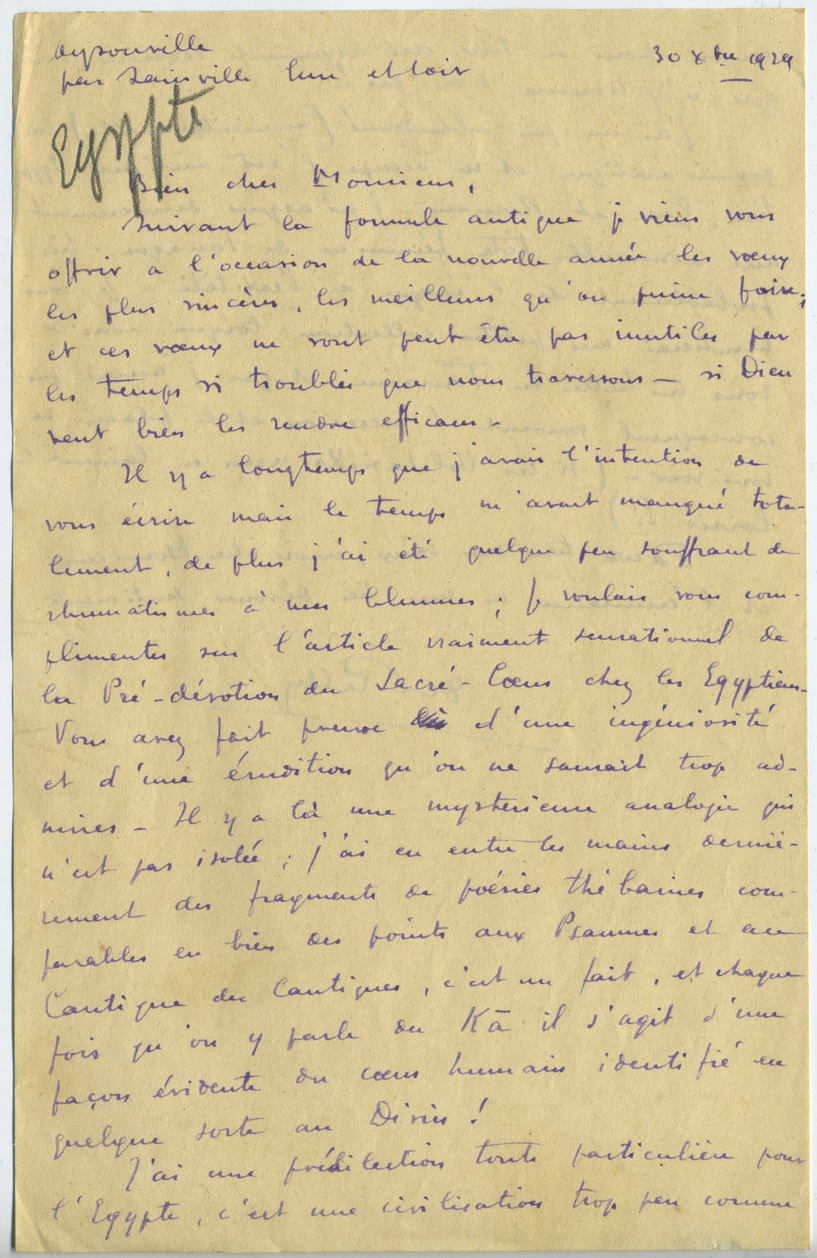 par Sainville Eure et Loir
30 Xbre 1929
Egypte
Bien cher Monsieur,
Suivant la formule antique je viens vous
offrir à l'occasion de la nouvelle année les vœux
les plus sincères, les meilleurs qu'on puisse faire,
et ces vœux ne sont peut être pas inutiles par
les temps si troublés que nous traversons — si Dieu
veut bien les rendre efficaces -
Il y a longtemps que j'avais l'intention de
vous écrire mais le temps m'avait manqué tota-
lement, de plus j'ai été quelque peu souffrant de
rhumatismes à mes blessures ; je voulais vous com-
plimenter sur l'article vraiment sensationnel de
la Pré-dévotion du Sacré-Cœur chez les Egyptiens-
Vous avez fait preuve d'une ingéniosité
et d'une érudition qu'on ne saurait trop ad-
mirer - Il y a là une mystérieuse analogie qui
n'est pas isolée ; j'ai eu entre les mains derniè-
rement des fragments de poésies thébaines com-
parables en bien des points aux Psaumes et au
Cantique des Cantiques, c'est un fait, et chaque
fois qu'on y parle du Kā il s'agit d'une
façon évidente du cœur humain identifié en
quelque sorte au Divin !
J'ai une prédilection toute particulière pour
l'Egypte, c'est une civilisation trop peu connue